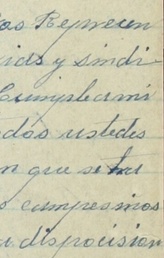 os Represen
cias y sindi
Cumpla mi
dos ustedes
n que se ha
s campesinos
a disposicion